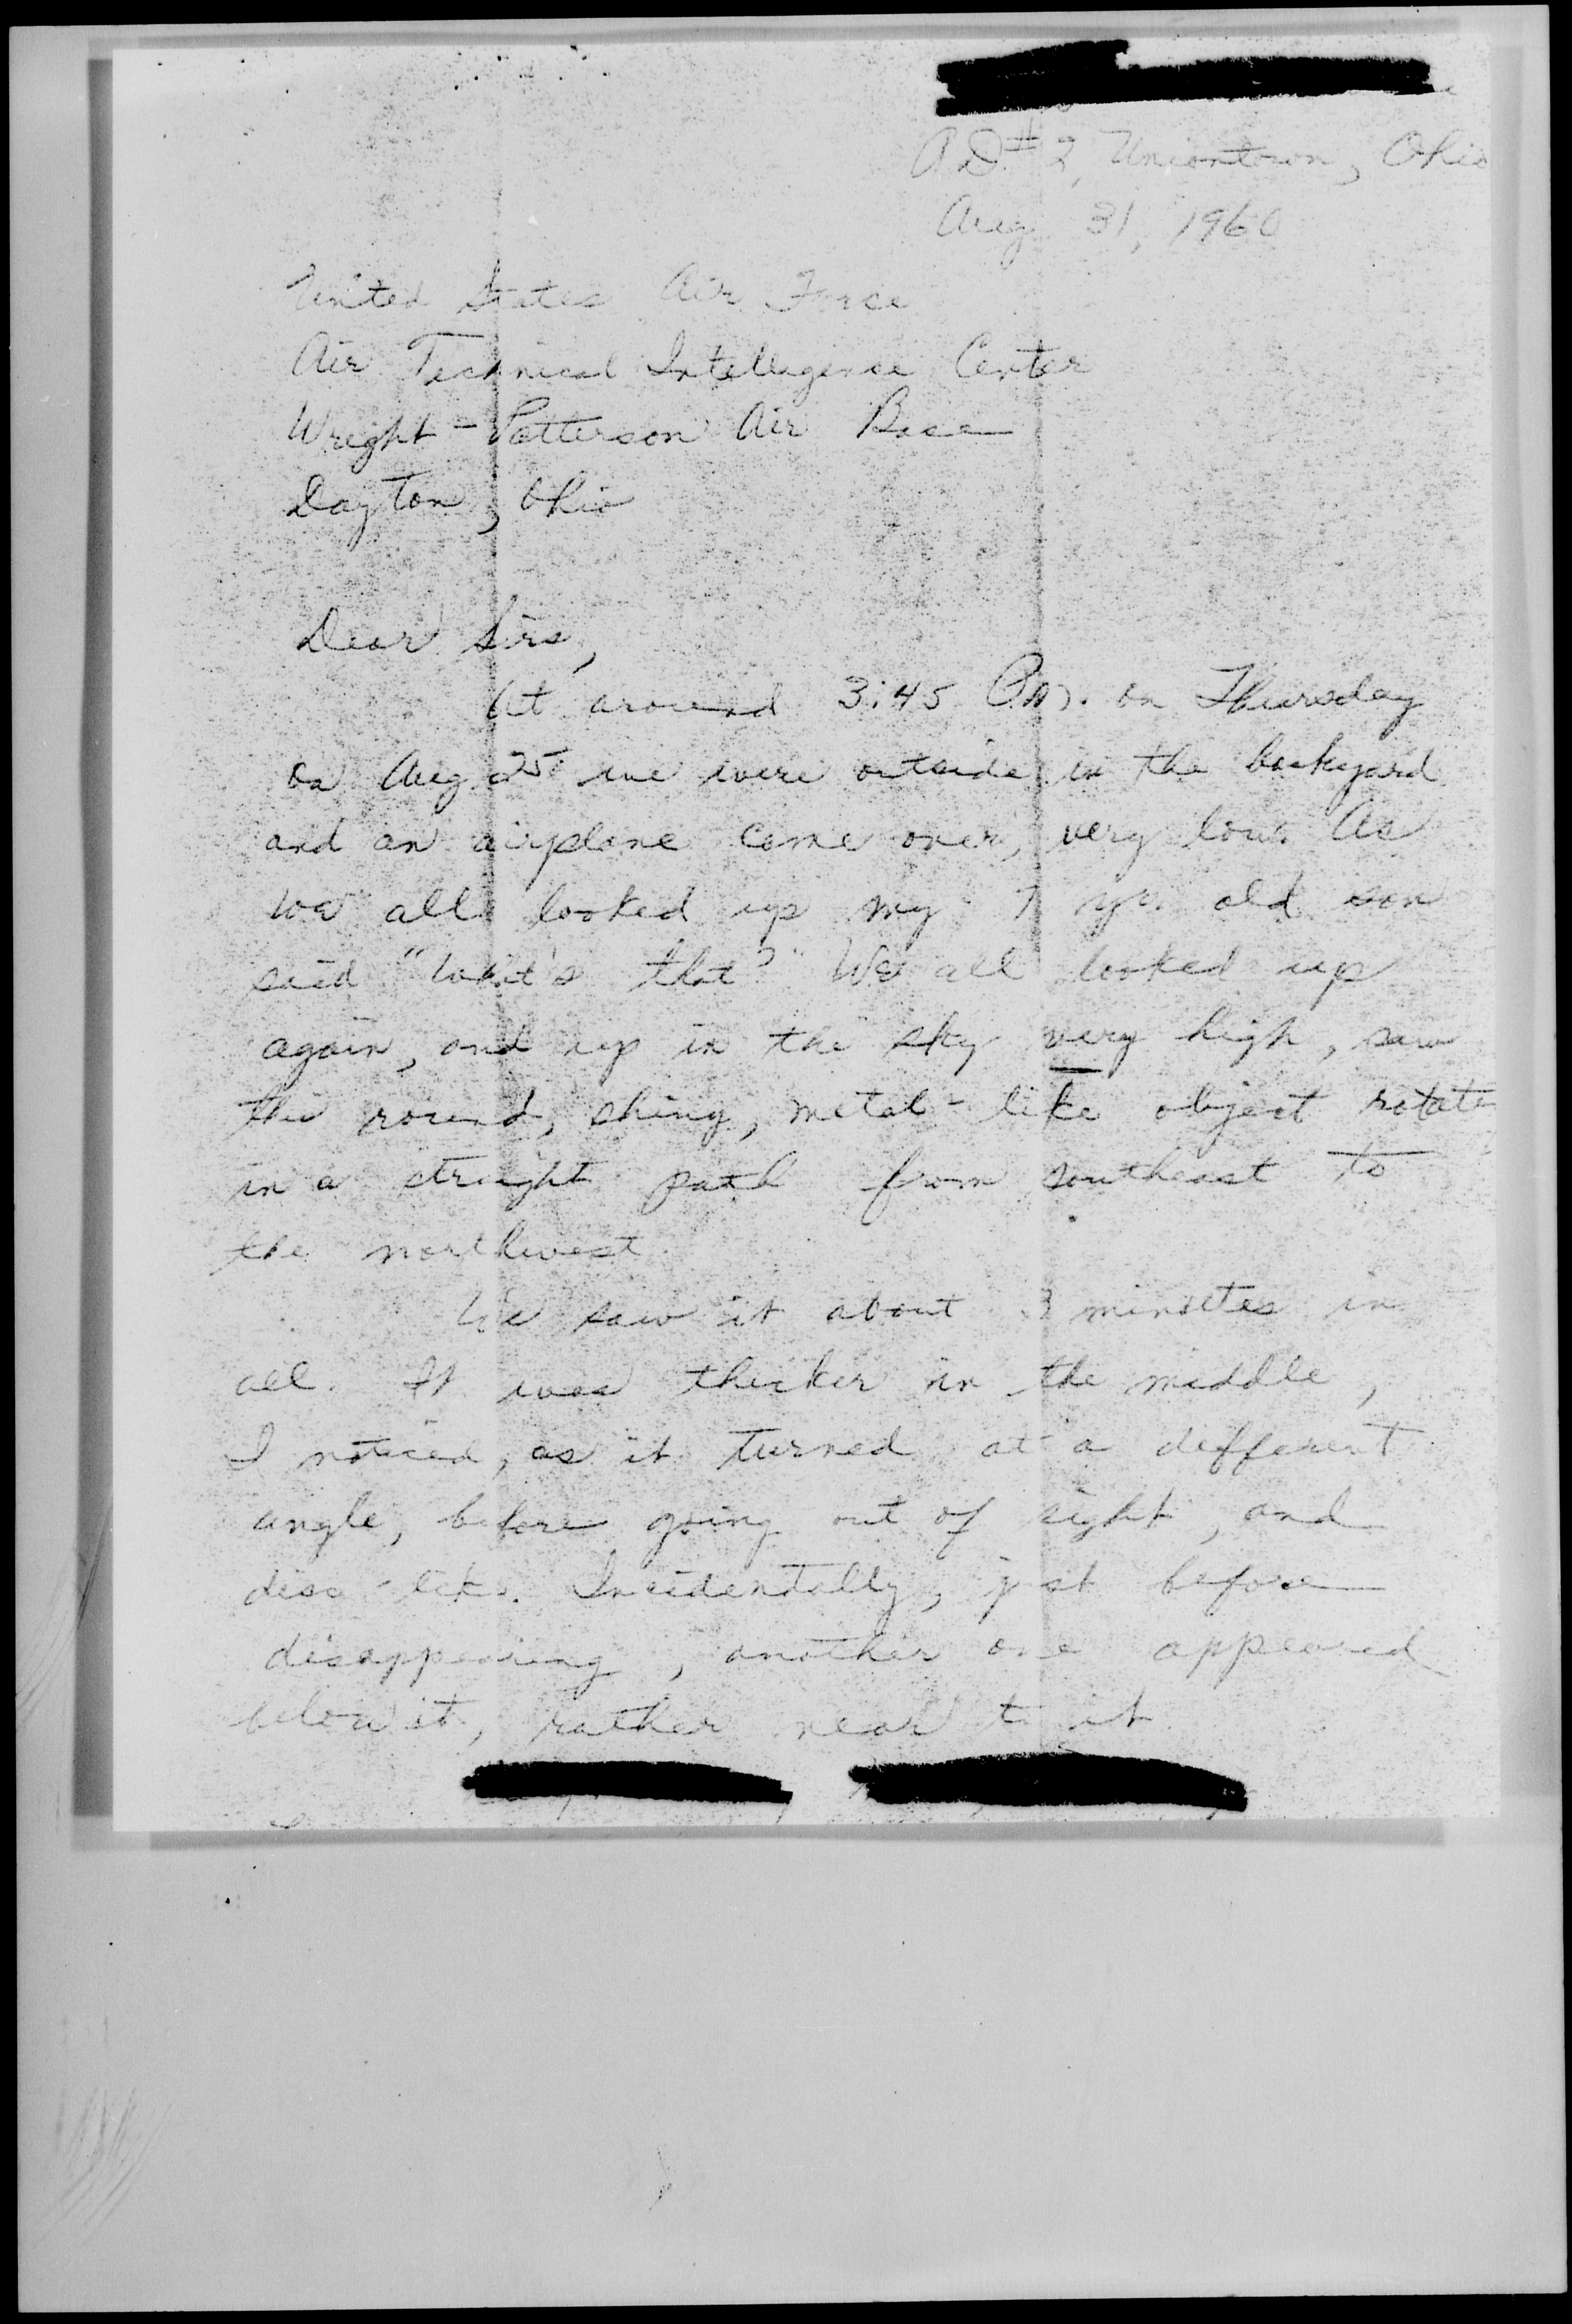 R.D. #2, Uniontown, Ohio
Aug 31, 1960
United States Air Force
Air Technical Intelligence Center
Wright-Patterson Air Base
Dayton, Ohio
Dear Sirs,
At around 3:45 P.M. on Thursday
on Aug 25 we were outside in the backyard
and an airplane came over, very low. As
we all looked up my 7 yr. old son
said "What's that?" We all looked up
again, and up in the sky very high, saw
this round, shiny, metal-like object rotate
in a straight path from southeast to
the northwest.
We saw it about 3 minutes in
all. It was thicker in the middle,
I noticed, as it turned at a different
angle, before going out of sight, and
disc-like. Incidentally, just before
disappearing, another one appeared
below it, rather near to it